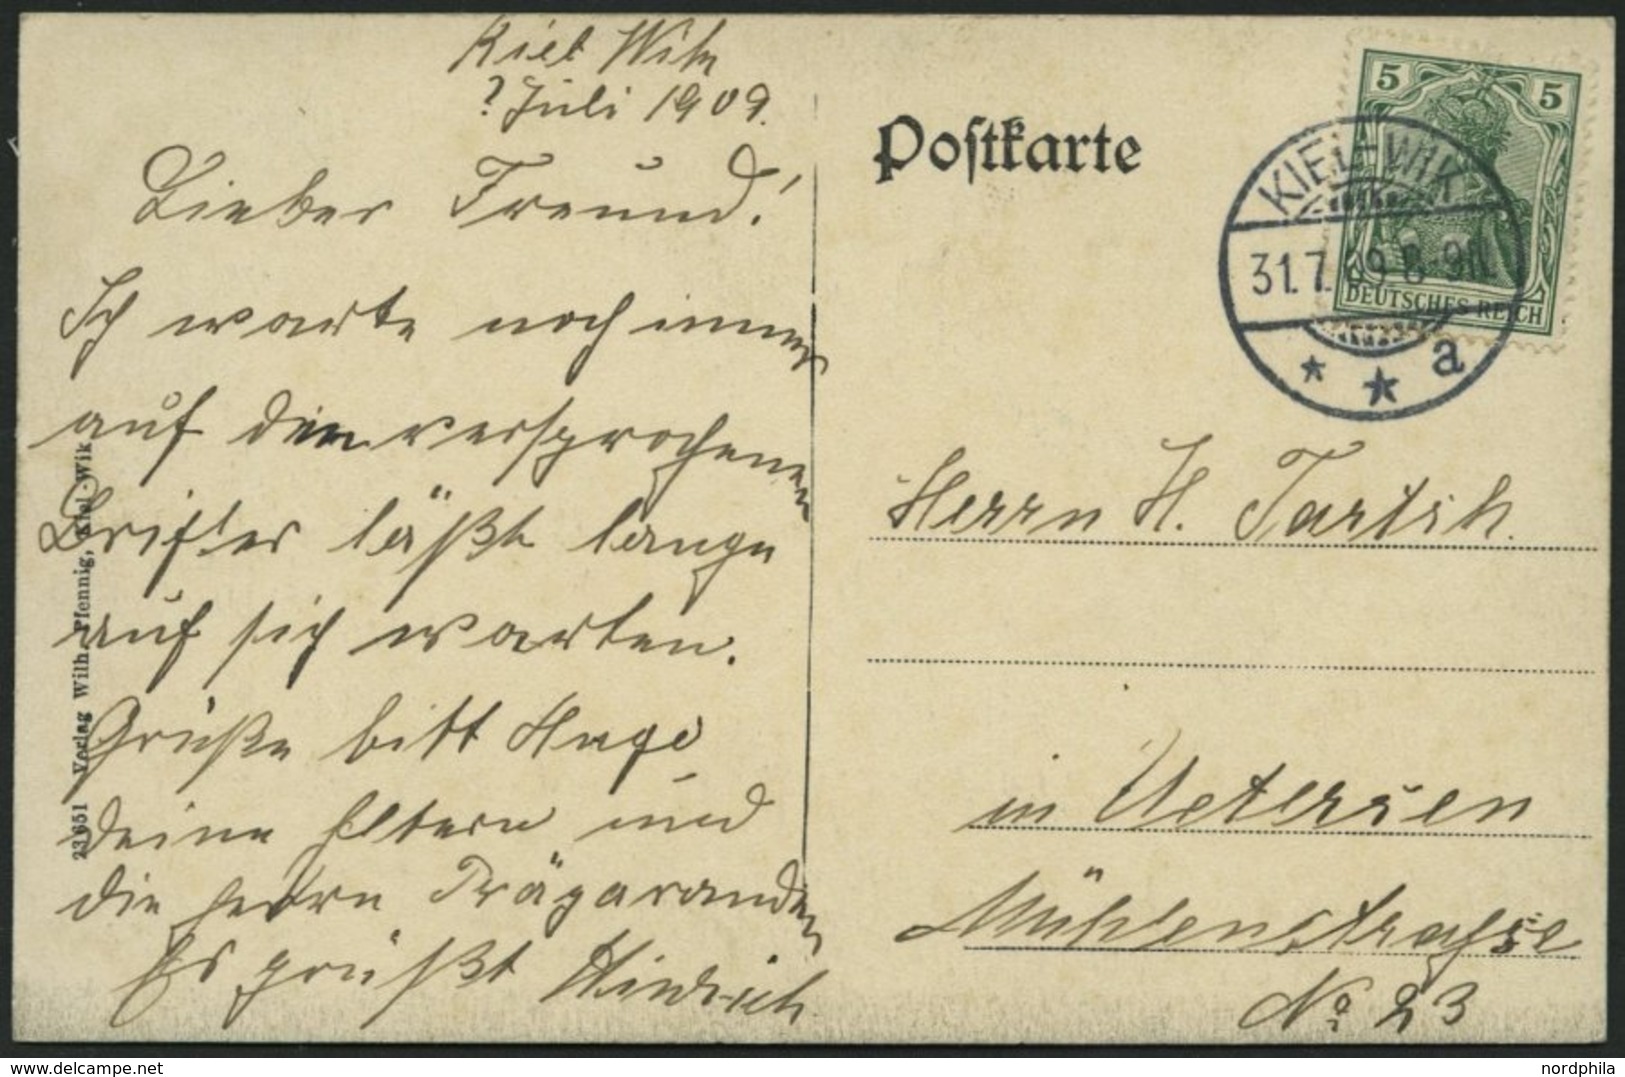 Kiel Wik
? Juli 1909.
Lieber Freund!
Ich warte noch immer
auf den versprochenen
Brif, er läßt lange
auf sich warten.
Grüße bitt Hugo
deine Eltern und
die Herrn Präparanden
Es grüßt Hindrich
23651 Verlag Wilh. Pfennig, Kiel-Wik
Postkarte
5 5
DEUTSCHES REICH
KIEL-WIK
31.7.09 8-9N
* * a
Herrn H. Tartsch.
in Uetersen
Mühlenstraße
No 23
nordphila